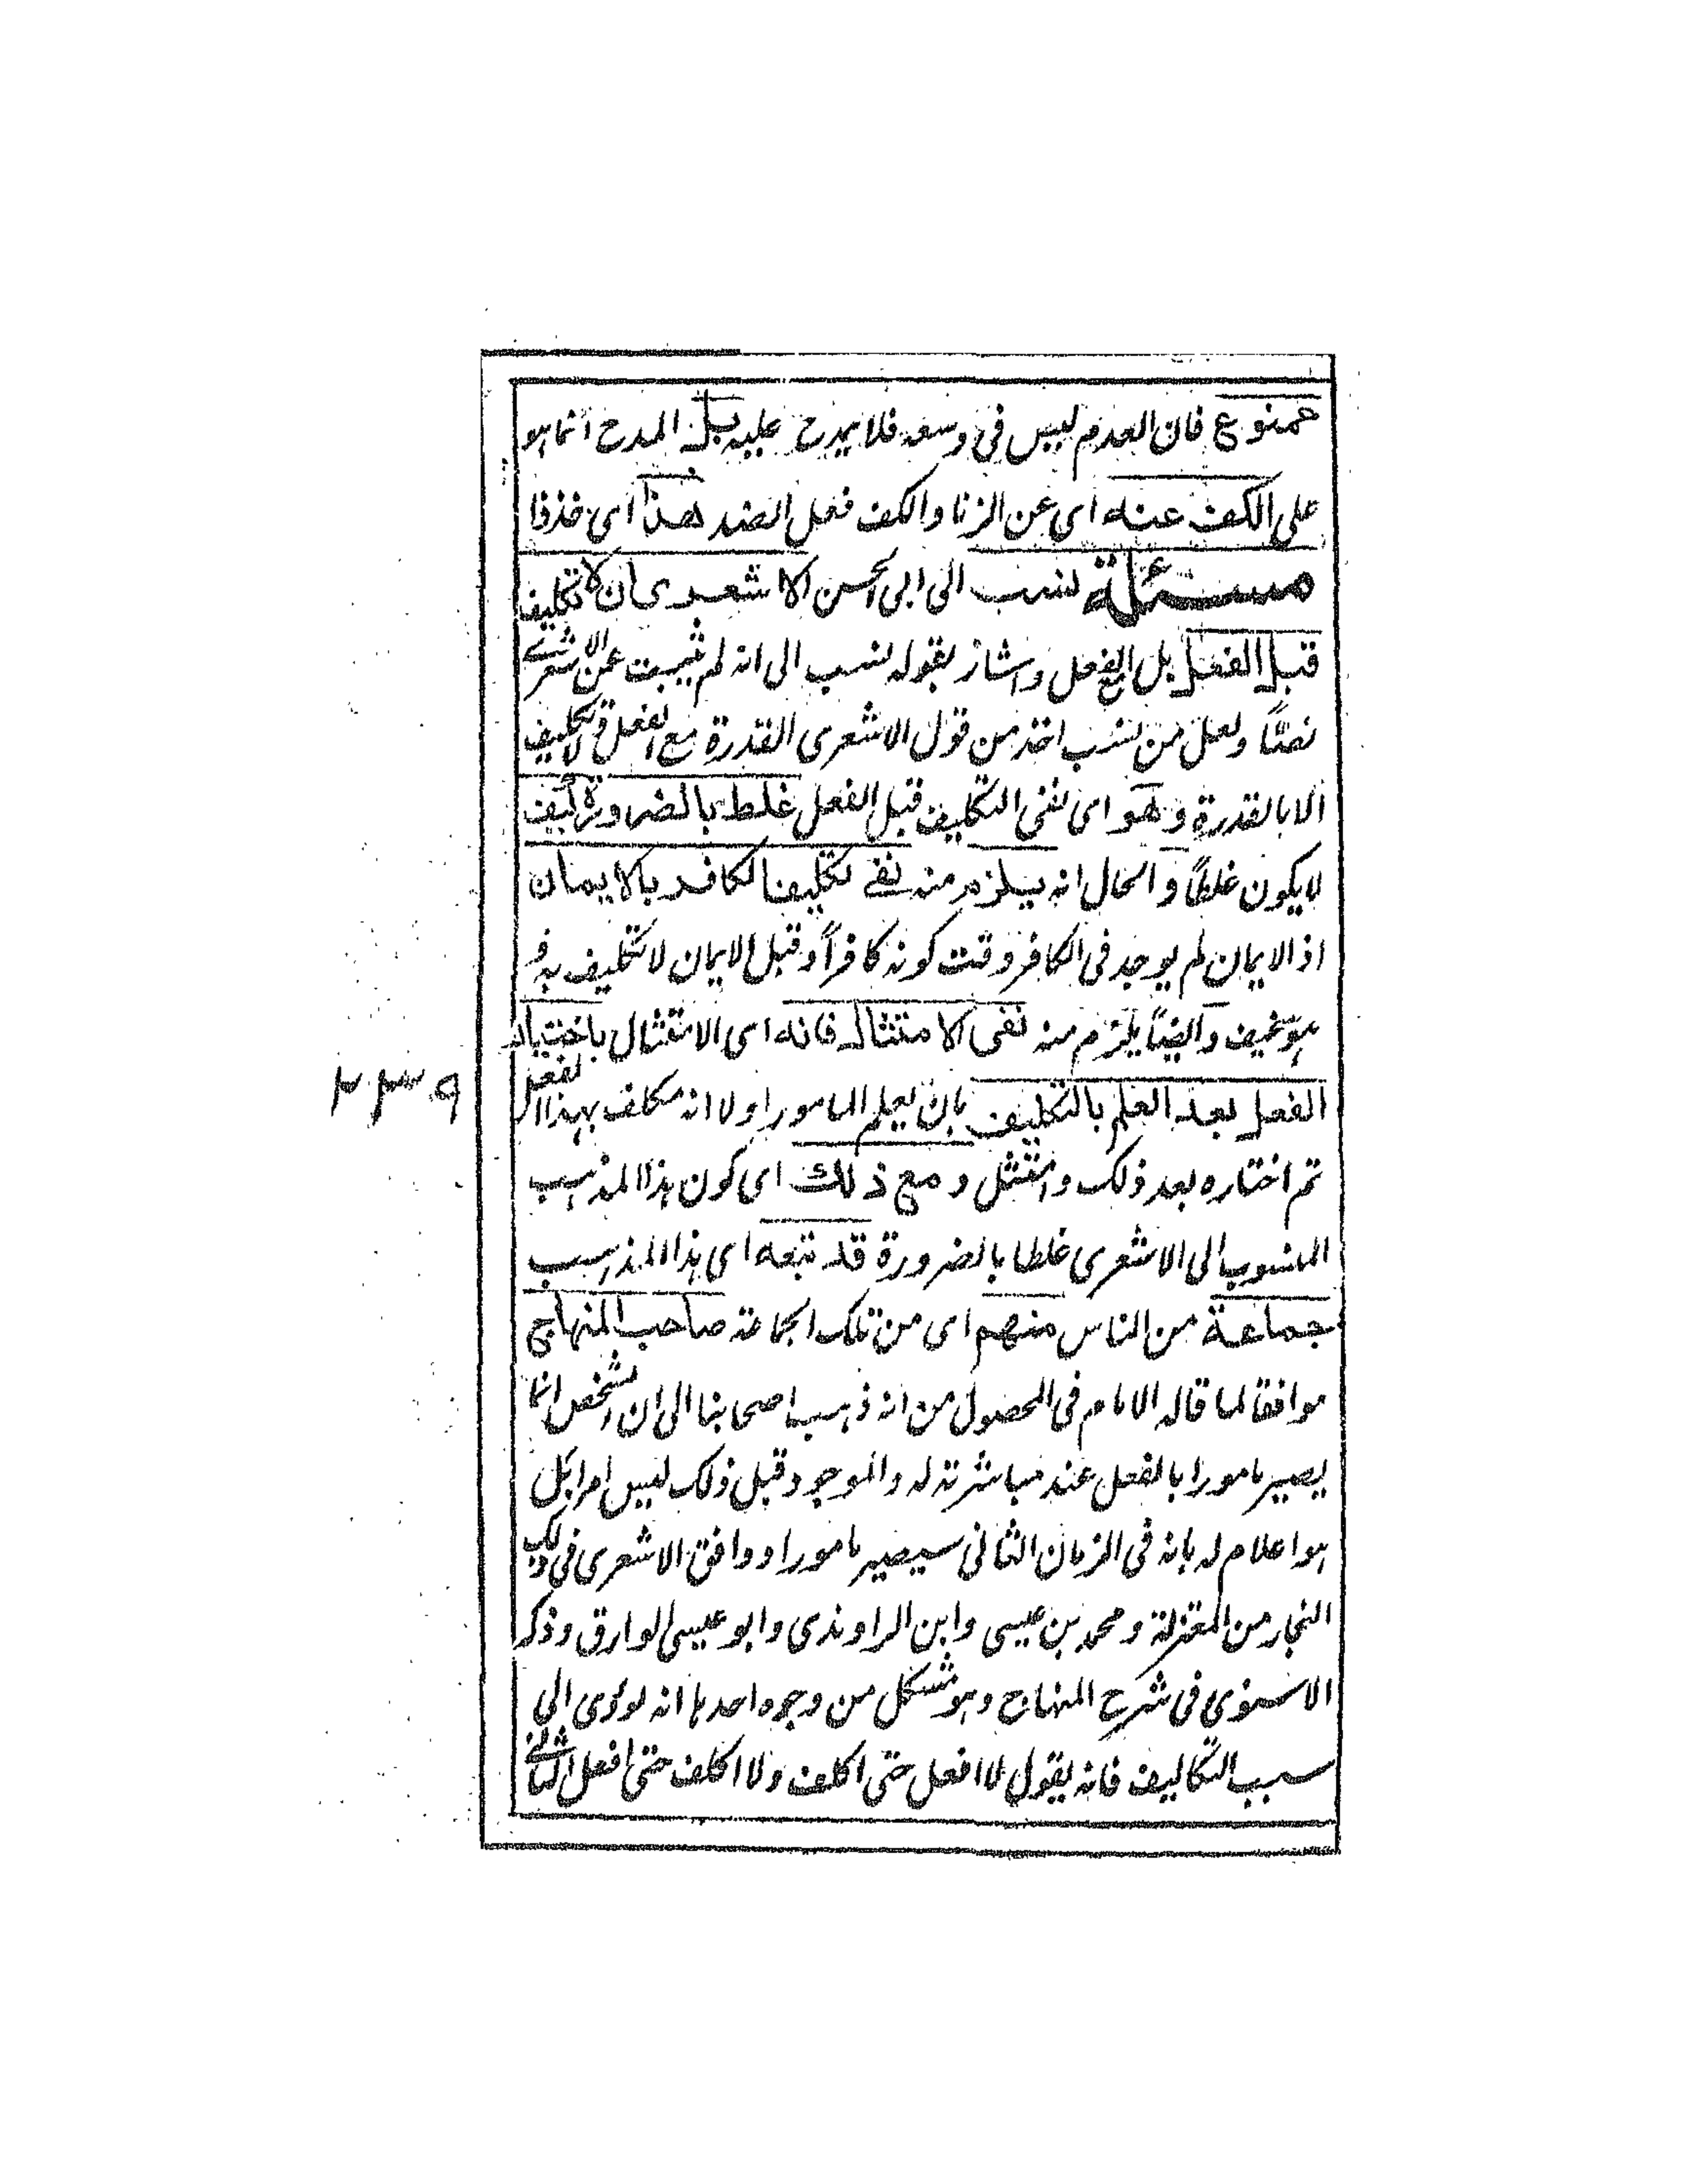 ممنوع فان العدم ليس فى وسعه فلا يمدح عليه بل المدح انما هو
على الكف عنه اى عن الزنا والكف فعل الضد هذا اى خذ ذا
مسئلة نسب الى ابى الحسن الاشعرى ان لا تكليف
قبل الفعل بل مع الفعل واشار بقوله نسب الى انه لم يثبت عن الاشعرى
نصًا ولعل من نسب اخذ من قول الاشعرى القدرة مع الفعل ولا تكليف
الا بالقدرة وهو اى نفى التكليف قبل الفعل غلط بالضرورة كيف
لا يكون غلطًا والحال انه يلزم منه نفى تكليف الكافر بالايمان
اذ الايمان لم يوجد فى الكافر وقت كونه كافرًا وقبل الايمان لا تكليف به و
هو سخيف وايضًا يلزم منه نفى الامتثال فانه اى الامتثال باختيار
الفعل بعد العلم بالتكليف بان يعلم المامور اولا انه مكلف بهذا الفعل
ثم اختاره بعد ذلك وامتثل ومع ذلك اى كون هذا المذهب
المنسوب الى الاشعرى غلطا بالضرورة قد تبعه اى هذا المذهب
جماعة من الناس منهم اى من تلك الجماعة صاحب المنهاج
موافقا لما قاله الامام فى المحصول من انه ذهب اصحابنا الى ان الشخص انما
يصير مامورا بالفعل عند مباشرته له والموجود قبل ذلك ليس امرا بل
هو اعلام له بانه فى الزمان الثانى سيصير مامورا ووافق الاشعرى فى ذلك
النجار من المعتزلة ومحمد بن عيسى وابن الراوندى وابو عيسى الوارق وذكر
الاسنوى فى شرح المنهاج وهو مشكل من وجوه احدها انه يؤدى الى
سبب التكاليف فانه يقول لا افعل حتى اكلف ولا اكلف حتى افعل الثانى
٢٣٩